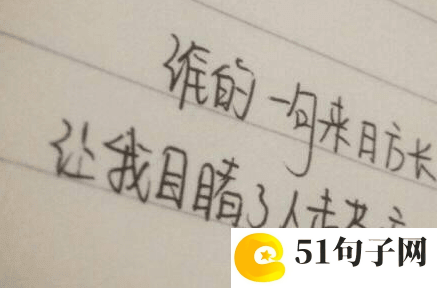 谁的一句来日方长
让我目睹了人走茶
51句子网